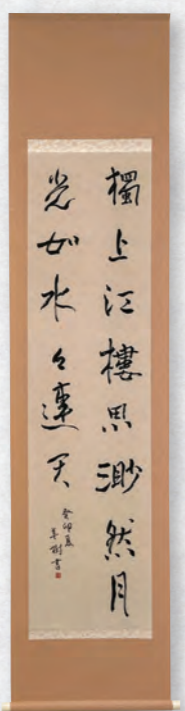 獨上江樓思渺然月
光如水々連天
癸卯夏
書